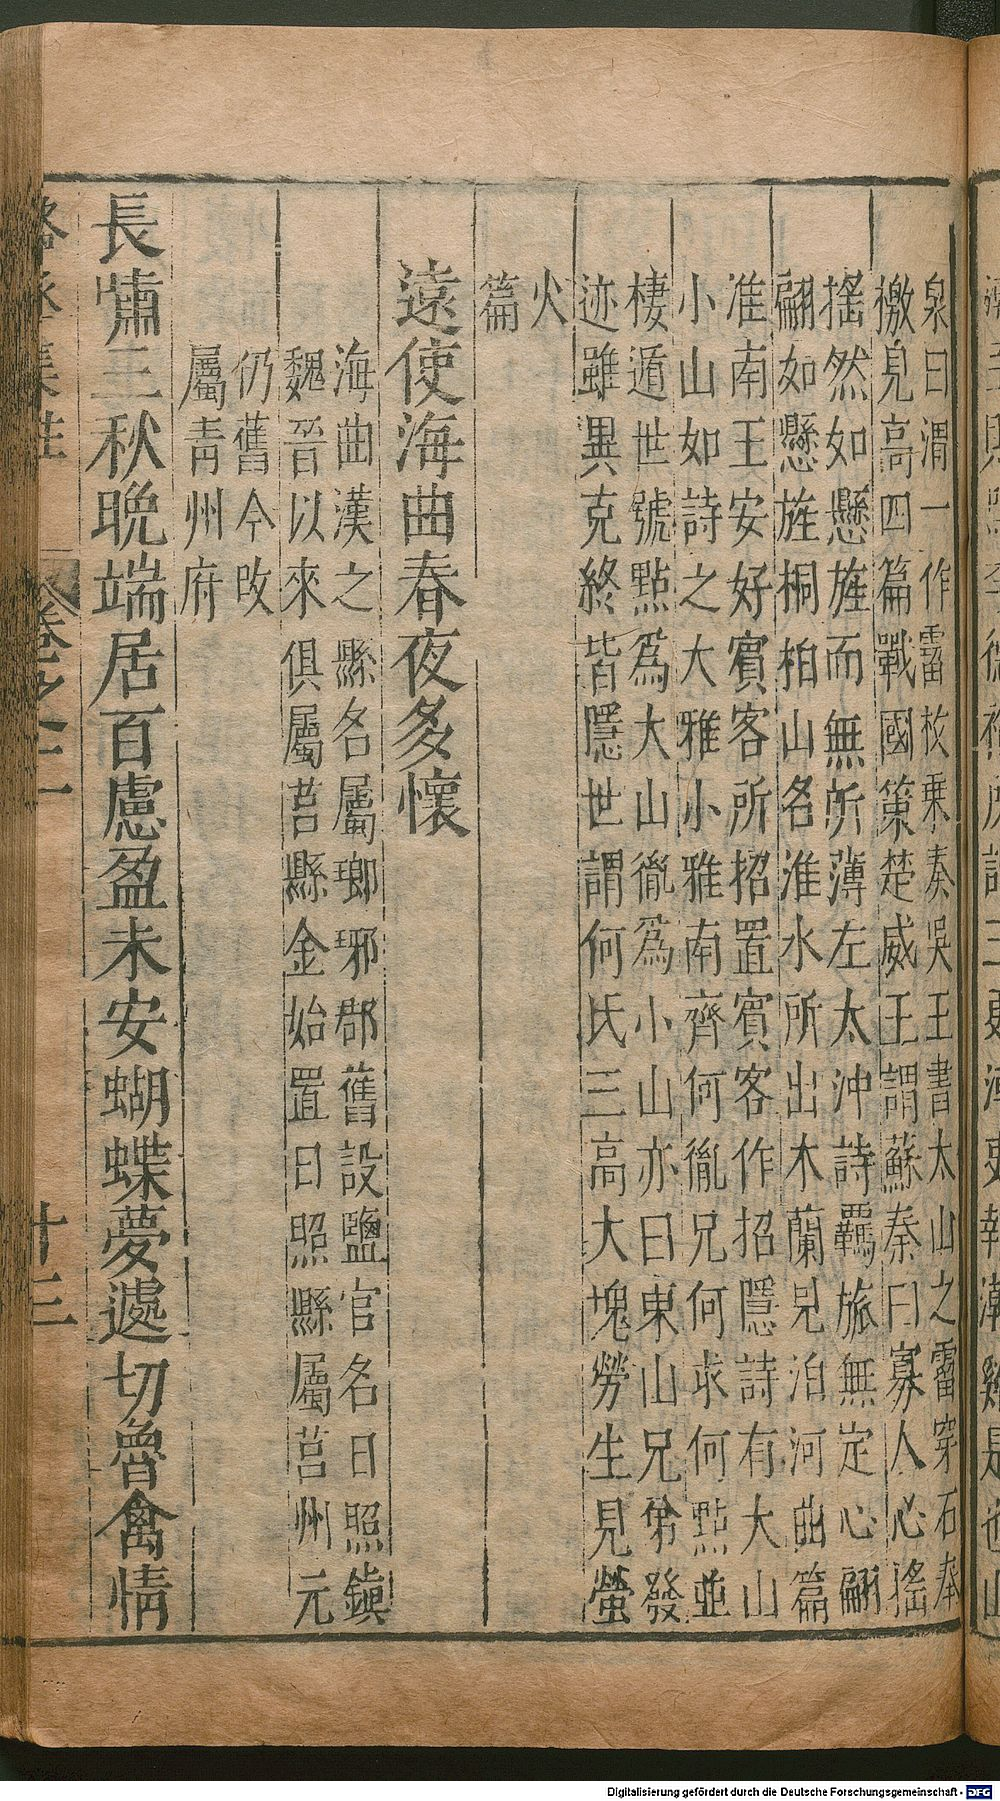 泉曰渭一作霤枚乗奏吳王書太山之霤穿石奉
檄見高四篇戰國策楚威王謂蘇秦曰寡人心搖
搖然如懸旌而無所薄左太沖詩羈旅無定心翩
翩如懸旌桐柏山名淮水所出木蘭見泊河曲篇
淮南王安好賓客所招置賓客作招隱詩有大山
小山如詩之大雅小雅南齊何胤兄何求何點並
棲遁世號點為大山胤為小山亦曰東山兄弟發
迹雖異克終皆隱世謂何氏三高大塊勞生見螢
火
篇
遠使海曲春夜多懷
海曲漢之縣名屬瑯琊郡舊設鹽官名日照鎮
魏晉以來俱屬莒縣金始置日照縣屬莒州元
仍舊今改
屬青州府
長嘯三秋晚端居百慮盈未安蝴蝶夢遽切魯禽情
卷之三
十三
Digitalisierung gefördert durch die Deutsche Forschungsgemeinschaft - DFG